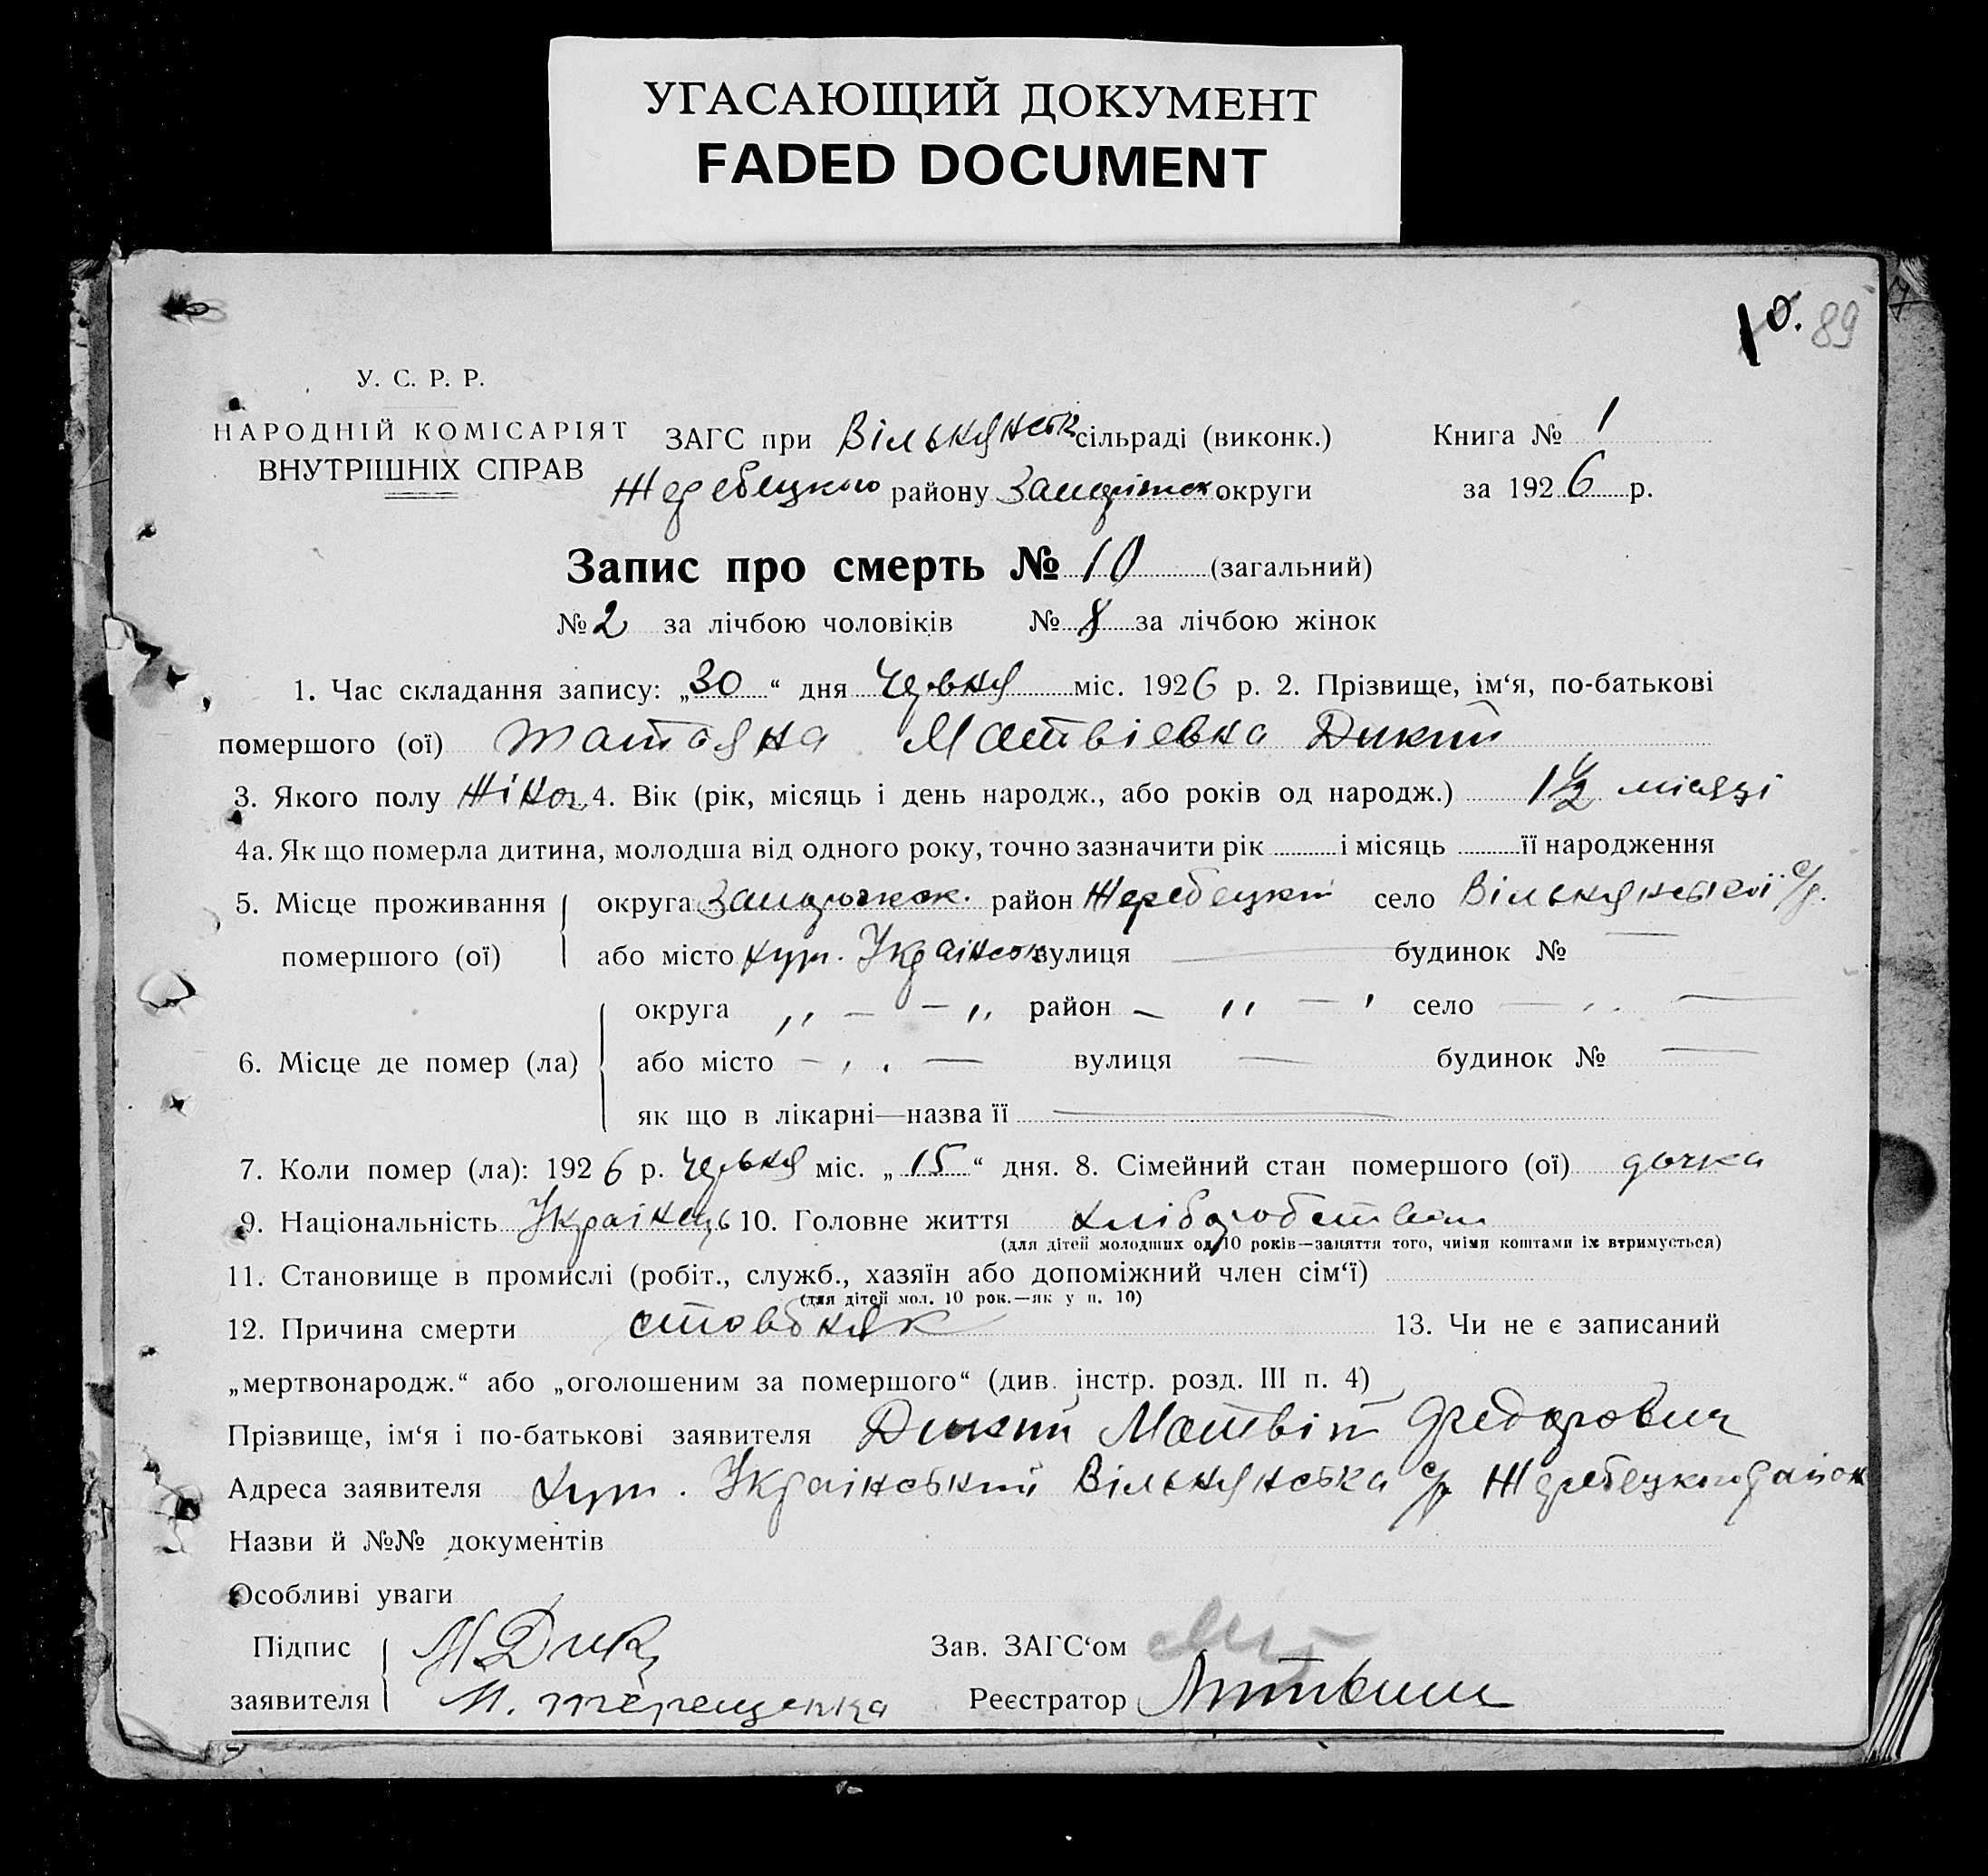 УГАСАЮЩИЙ ДОКУМЕНТ
FADED DOCUMENT
10. 89
У. С. Р. Р.
НАРОДНІЙ КОМІСАРІЯТ
ВНУТРІШНІХ СПРАВ
ЗАГС при Вільнянськ сільраді (виконк.) Книга № 1
Жеребецького району округи за 1926 р.
Запис про смерть № 10 (загальний)
№ 2 за лічбою чоловіків № 8 за лічбою жінок
1. Час складання запису: „30“ дня Червня міс. 1926 р. 2. Прізвище, ім‘я, по-батькові
помершого (ої) Татьяна Матвіевна Дикий
3. Якого полу Жіноч. 4. Вік (рік, місяць і день народж., або років од народж.) 1½ місяці
4а. Як що померла дитина, молодша від одного року, точно зазначити рік і місяць її народження
5. Місце проживання округа район Жеребецький село Вільнянської с/р.
помершого (ої) або місто хут. Українськ вулиця — будинок № —
округа „ — „ район — „ — село — „ —
6. Місце де помер (ла) або місто — „ — вулиця — будинок № —
як що в лікарні—назва її —
7. Коли помер (ла): 1926 р. Червня міс. „15“ дня. 8. Сімейний стан помершого (ої) дочка
9. Національність Українець 10. Головне життя хліборобством
(для дітей молодших од 10 років—заняття того, чиїми коштами їх втримується)
11. Становище в промислі (робіт., служб., хазяїн або допоміжний член сім‘ї)
(для дітей мол. 10 рок.—як у п. 10)
12. Причина смерти стовбняк 13. Чи не є записаний
„мертвонародж.“ або „оголошеним за помершого“ (див. інстр. розд. III п. 4)
Прізвище, ім‘я і по-батькові заявителя Дикий Матвій Федорович
Адреса заявителя хут. Український Вільнянська с/р Жеребецького район
Назви й №№ документів
Особливі уваги
Підпис М Дик Зав. ЗАГС‘ом
заявителя М. Терещенка Реєстратор Литвин